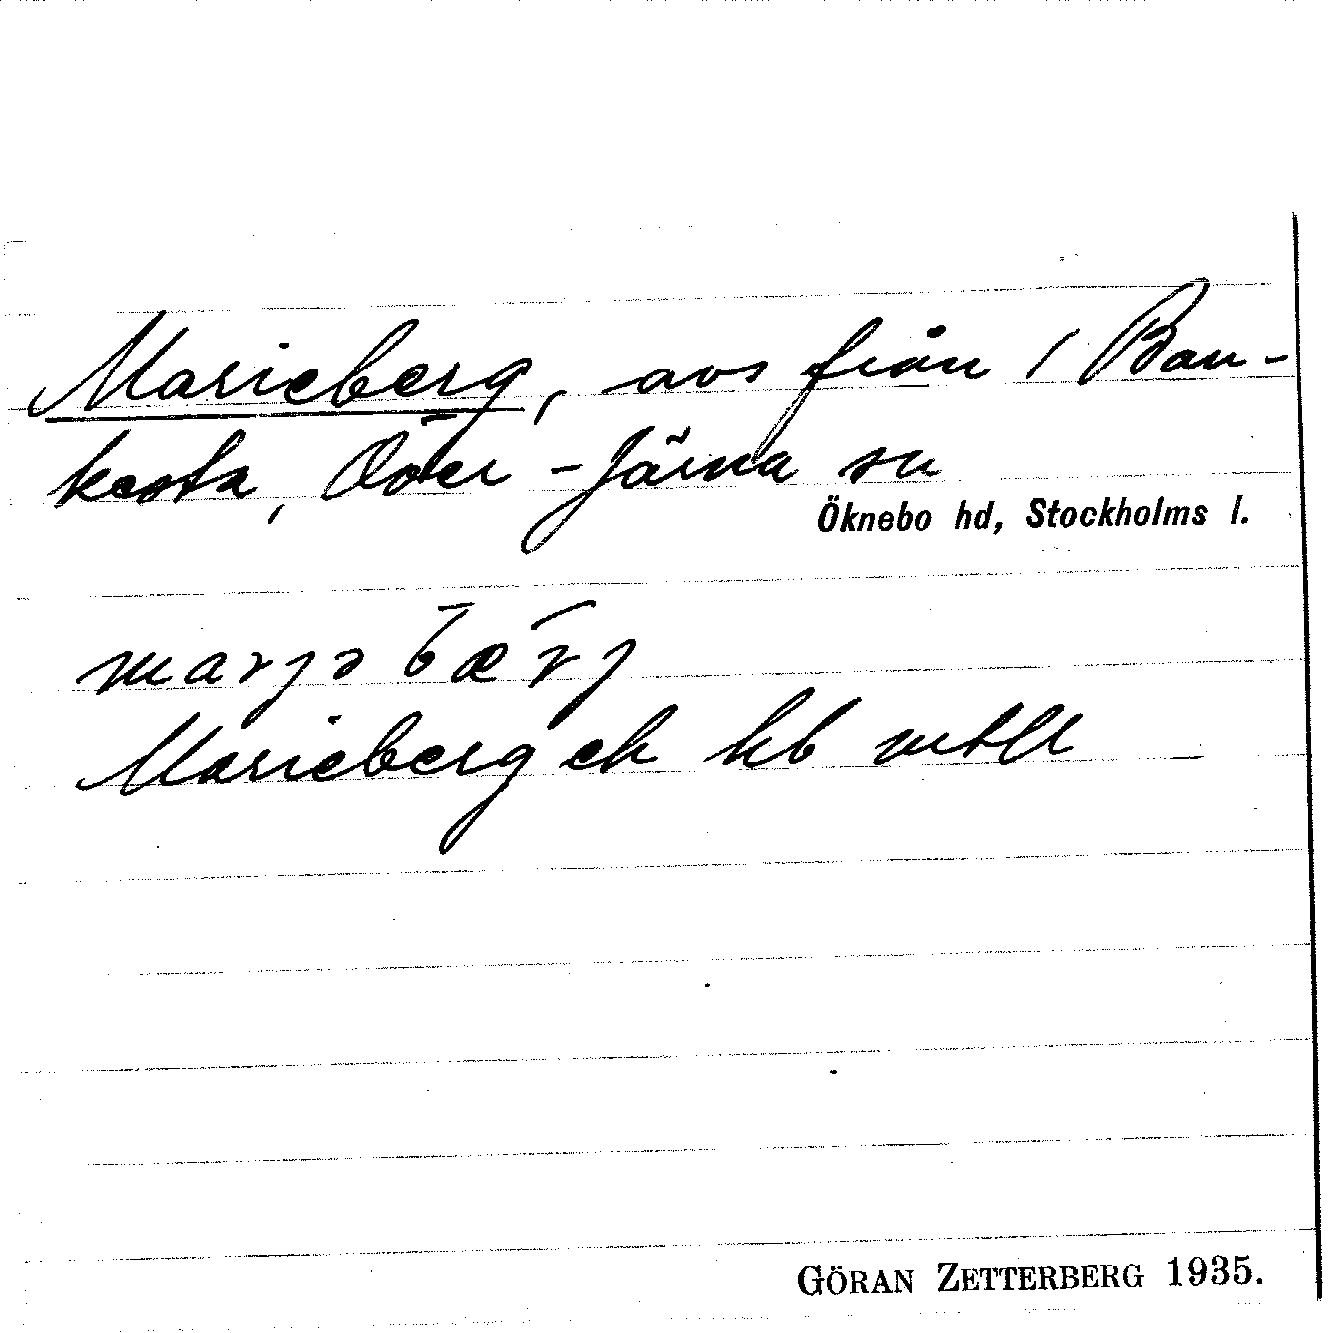 Marieberg, avs från 1 Ban-
kesta, Över-Järna sn
Öknebo hd, Stockholms l.
marjəbærj
Marieberg ek hb mtll
GÖRAN ZETTERBERG 1935.